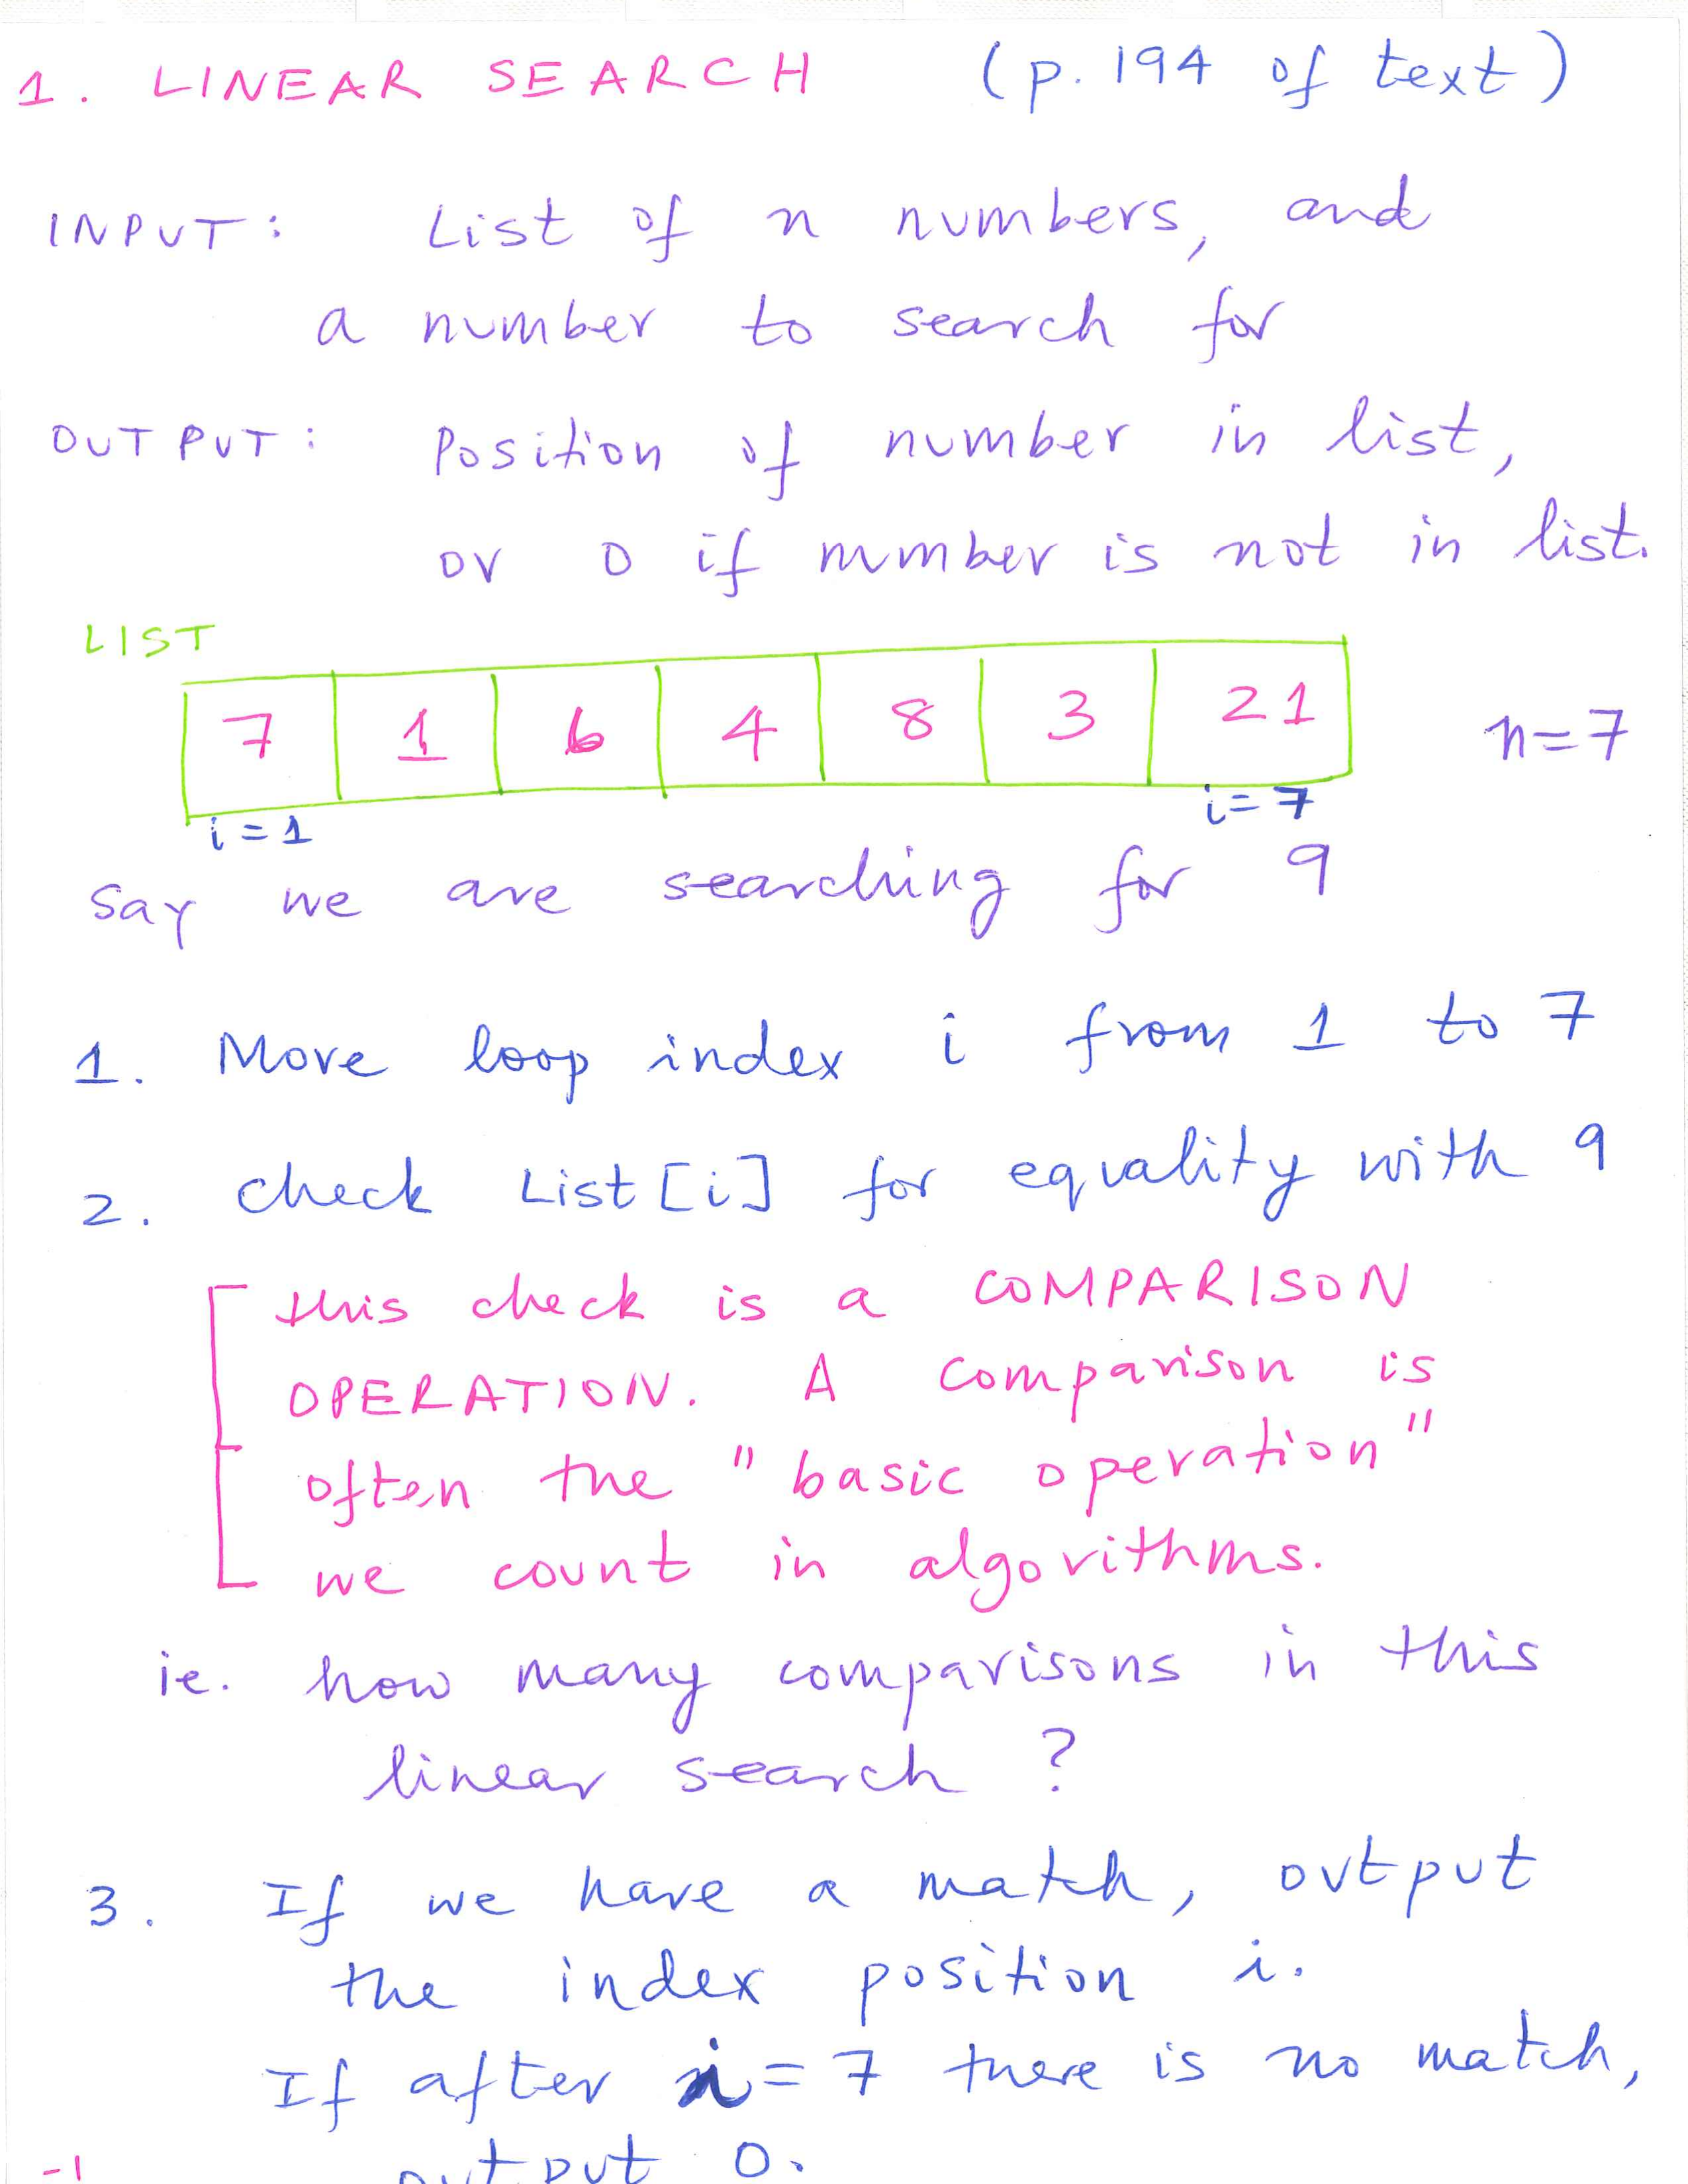 1. LINEAR SEARCH (p. 194 of text)
INPUT: List of n numbers, and
a number to search for
OUTPUT: Position of number in list,
or 0 if number is not in list.
LIST
7 1 6 4 8 3 21 n=7
i=1 i=7
Say we are searching for 9
1. Move loop index i from 1 to 7
2. Check List[i] for equality with 9
this check is a COMPARISON
OPERATION. A comparison is
often the "basic operation"
we count in algorithms.
ie. how many comparisons in this
linear search?
3. If we have a match, output
the index position i.
If after i=7 there is no match,
output 0.
-1